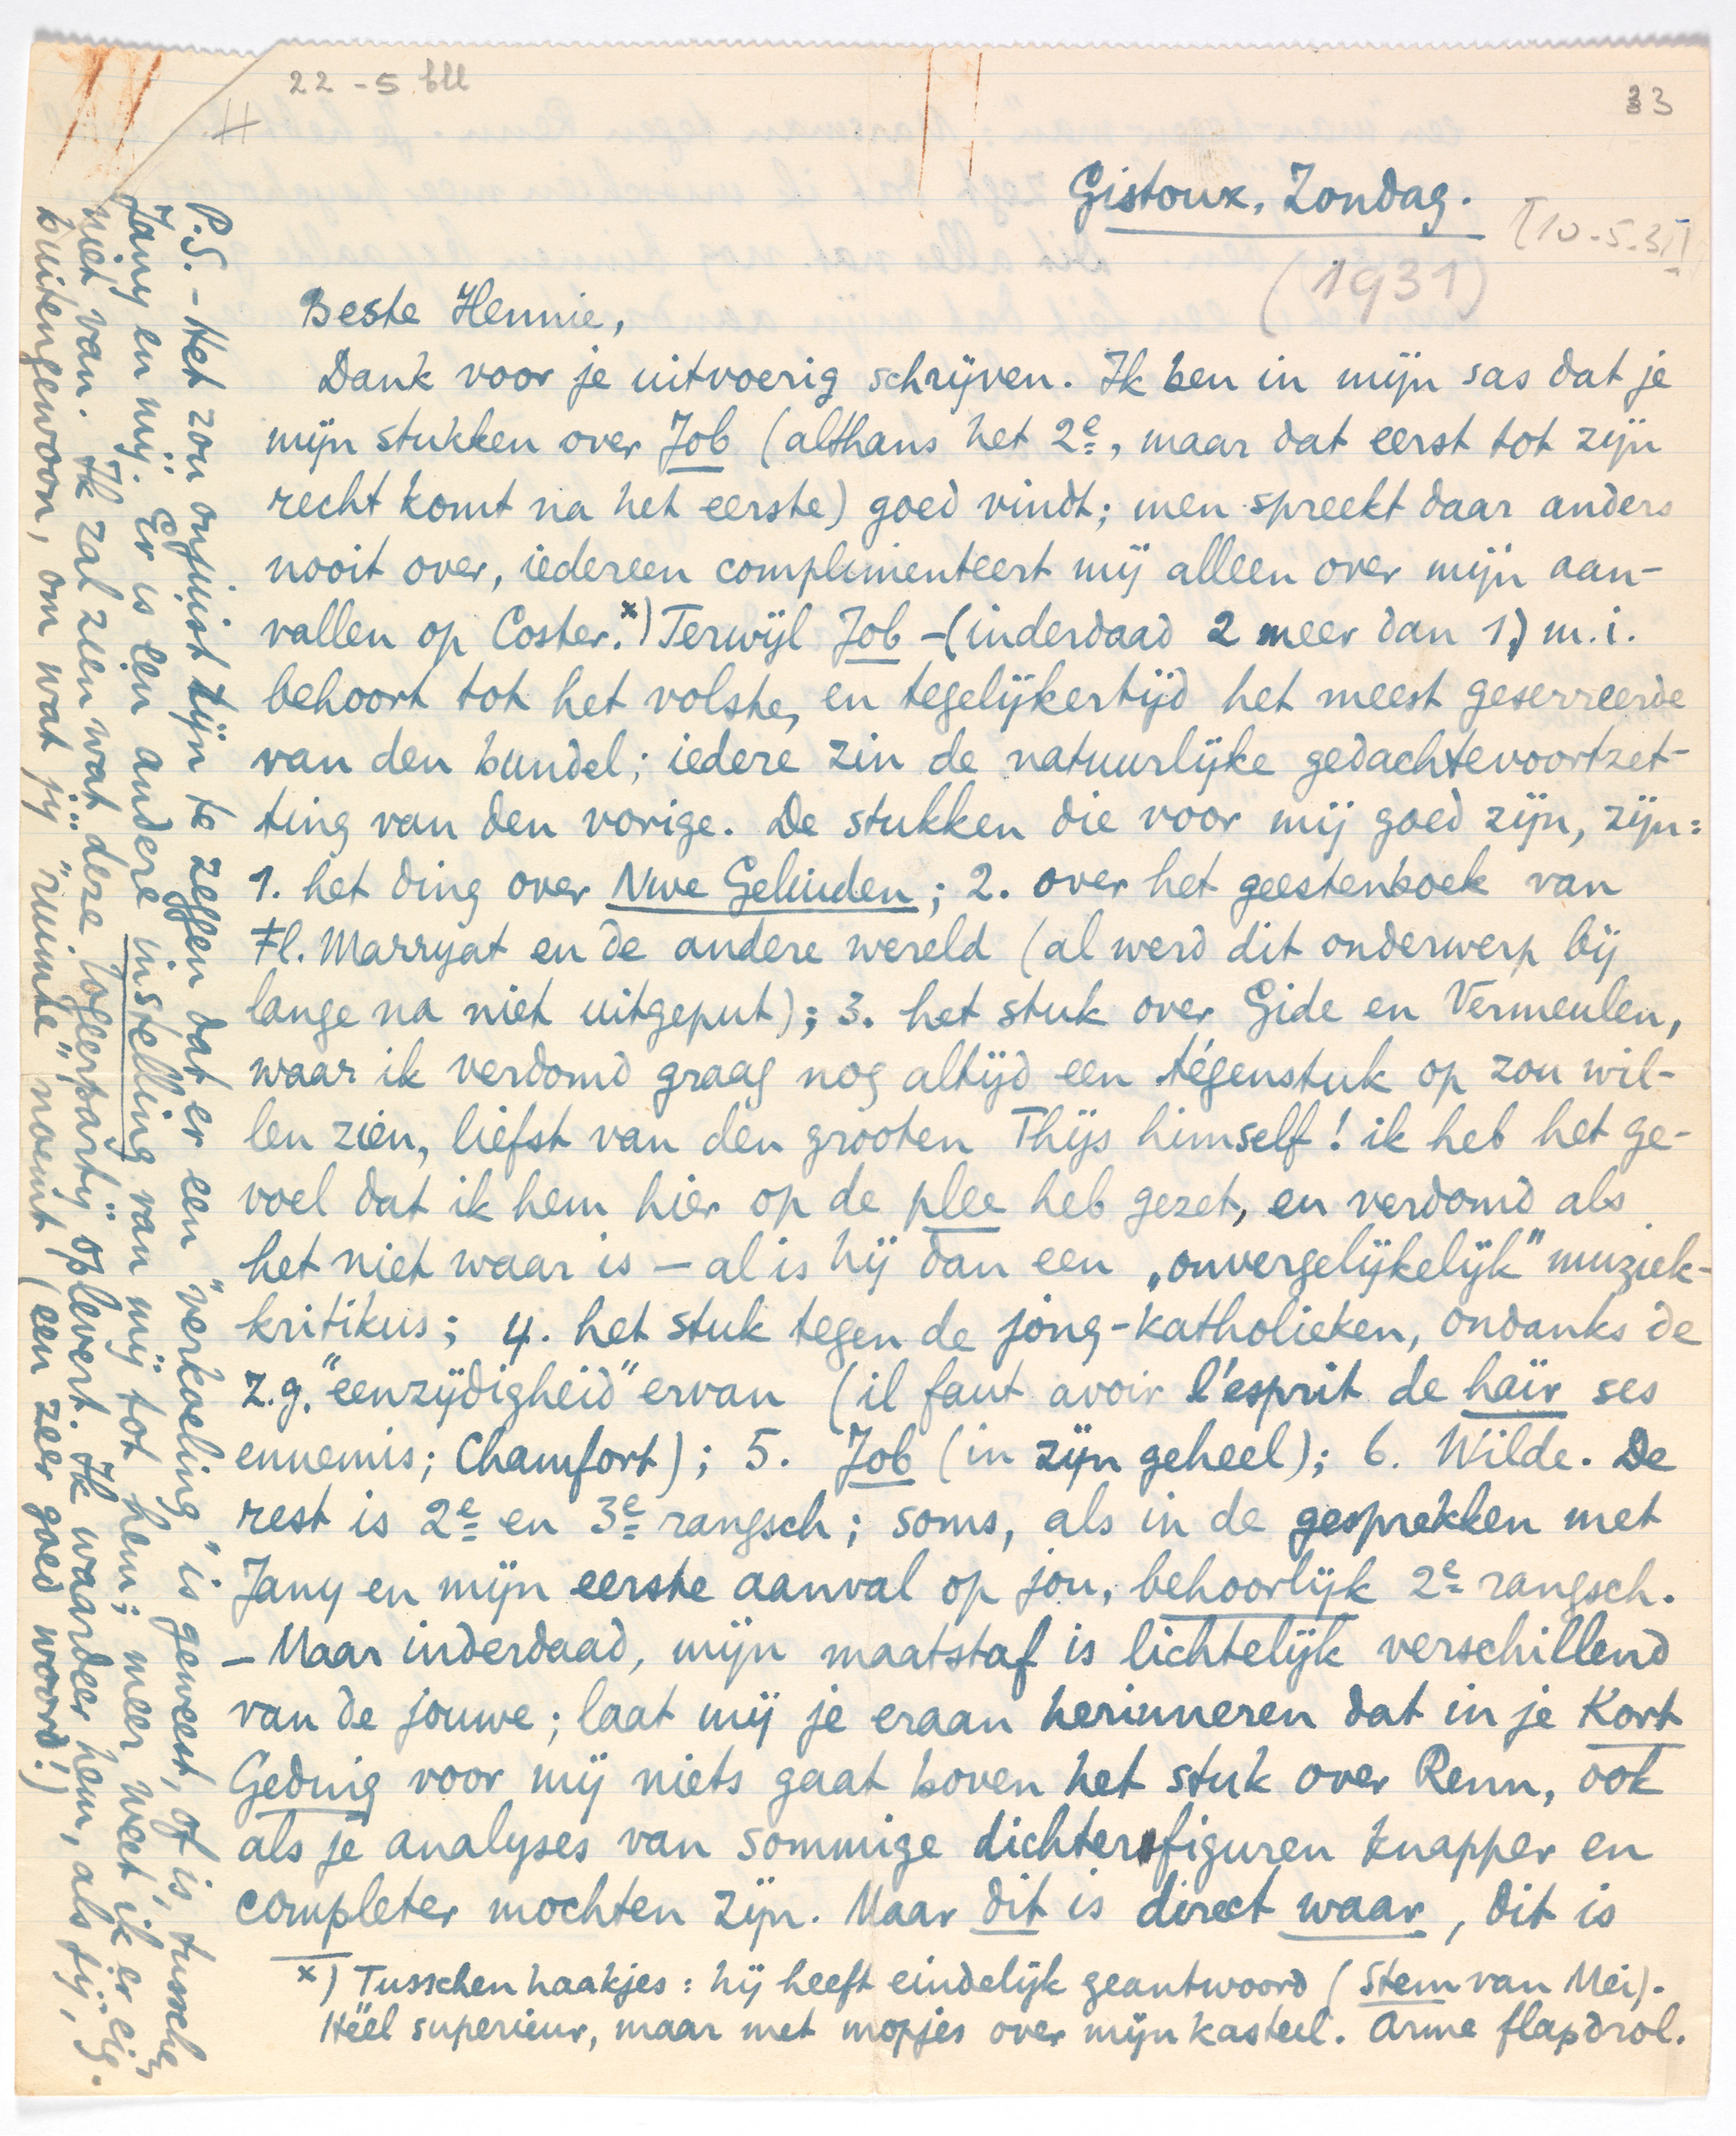 22 - 5 bll
33
Gistoux, Zondag.
[10-5-31]
(1931)
Beste Hennie,
Dank voor je uitvoerig schrijven. Ik ben in mijn sas dat je
mijn stukken over Job (althans het 2e, maar dat eerst tot zijn
recht komt na het eerste) goed vindt; men spreekt daar anders
nooit over, iedereen complimenteert mij alleen over mijn aan-
vallen op Coster.x) Terwijl Job - (inderdaad 2 meer dan 1) m.i.
behoort tot het volste, en tegelijkertijd het meest geserreerde
van den bundel; iedere zin de natuurlijke gedachtevoortzet-
ting van den vorige. De stukken die voor mij goed zijn, zijn:
1. het ding over Nwe Geluiden; 2. over het geestenboek van
Fl. Marryat en de andere wereld (al werd dit onderwerp bij
lange na niet uitgeput); 3. het stuk over Gide en Vermeulen,
waar ik verdomd graag nog altijd een tégenstuk op zou wil-
len zien, liefst van den grooten Thijs himself! ik heb het ge-
voel dat ik hem hier op de plee heb gezet, en verdomd als
het niet waar is — al is hij dan een „onvergelijkelijk" muziek-
kritikus; 4. het stuk tegen de jong-katholieken, ondanks de
z.g. "eenzijdigheid" ervan (il faut avoir l'esprit de haïr ses
ennemis; Chamfort); 5. Job (in zijn geheel); 6. Wilde. De
rest is 2e en 3e rangsch; soms, als in de gesprekken met
Jany en mijn eerste aanval op jou, behoorlijk 2e rangsch.
— Maar inderdaad, mijn maatstaf is lichtelijk verschillend
van de jouwe; laat mij je eraan herinneren dat in je Kort
Geding voor mij niets gaat boven het stuk over Renn, ook
als je analyses van sommige dichterfiguren knapper en
completer mochten zijn. Maar dit is direct waar, dit is
x) Tusschen haakjes: hij heeft eindelijk geantwoord (Stem van Mei).
Héél superieur, maar met mopjes over mijn kasteel. Arme flapdrol.
P.S. - Het zou onjuist zijn te zeggen dat er een "verkoeling" is geweest, of is, tusschen
Jany en mij. Er is een andere instelling van mij tot hem; meer weet ik er eig.
niet van. Ik zal zien wat deze logeerpartij oplevert. Ik waardeer hem, als tijd,
buitengewoon, om wat jij "ruimte" noemt (een zeer goed woord!)